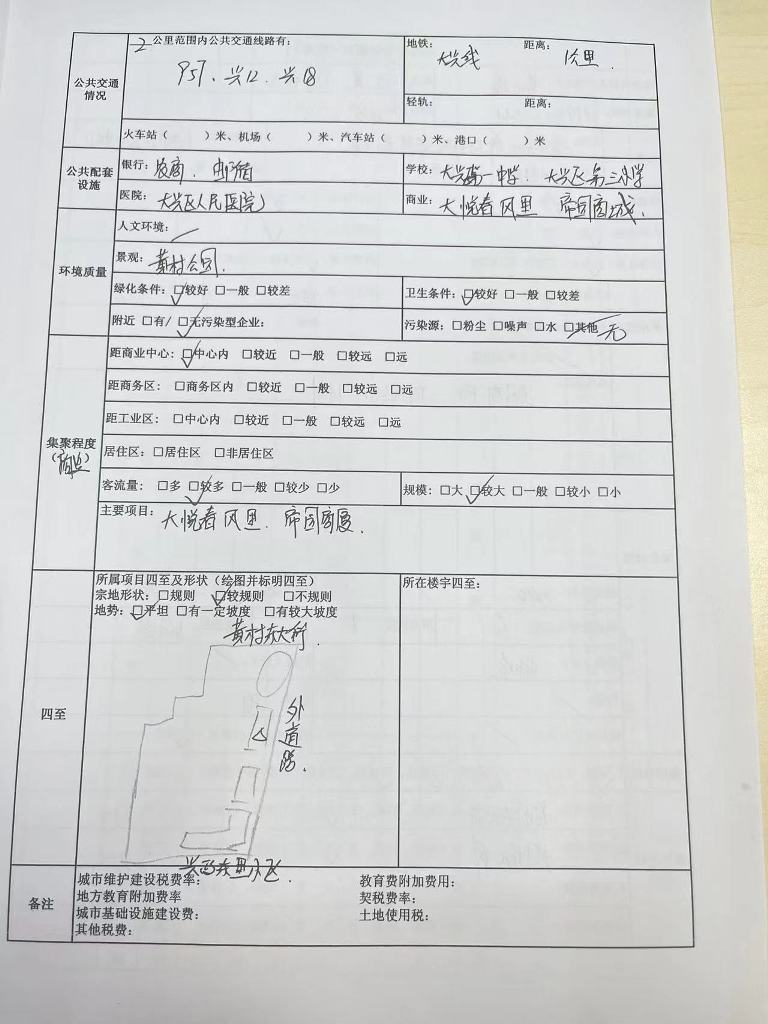 2 公里范围内公共交通线路有:
地铁: 大兴线 距离: 1公里.
957、兴12、兴18
公共交通情况
轻轨: 距离:
火车站( )米、机场( )米、汽车站( )米、港口( )米
公共配套设施
银行: 农商、邮储
学校: 大兴第一中学、大兴区第三小学
医院: 大兴区人民医院
商业: 大悦春风里
人文环境: /
环境质量
景观: 黄村公园.
绿化条件: ☑较好 □一般 □较差
卫生条件: ☑较好 □一般 □较差
附近 □有/ ☑无污染型企业:
污染源: □粉尘 □噪声 □水 □其他 无
距商业中心: ☑中心内 □较近 □一般 □较远 □远
距商务区: □商务区内 □较近 □一般 □较远 □远
距工业区: □中心内 □较近 □一般 □较远 □远
集聚程度
(商业)
居住区: □居住区 □非居住区
客流量: □多 ☑较多 □一般 □较少 □少
规模: □大 ☑较大 □一般 □较小 □小
主要项目: 大悦春风里、
四至
所属项目四至及形状(绘图并标明四至)
所在楼宇四至:
宗地形状: □规则 ☑较规则 □不规则
地势: ☑平坦 □有一定坡度 □有较大坡度
黄村东大街
外道路.
兴政东里小区.
备注
城市维护建设税费率:
教育费附加费用:
地方教育附加费率
契税费率:
城市基础设施建设费:
土地使用税:
其他税费: